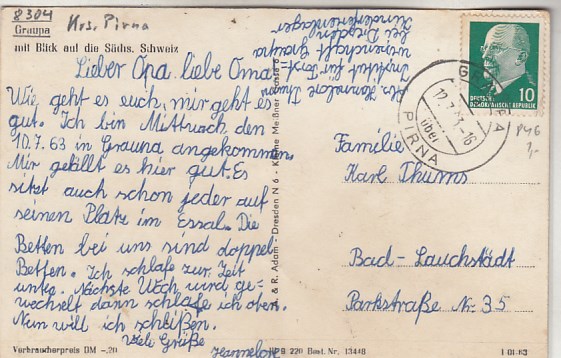 8304
Krs. Pirna
Graupa
mit Blick auf die Sächs. Schweiz
Lieber Opa, liebe Oma
Wie geht es euch, mir geht es
gut. Ich bin Mittwoch den
10.7.63 in Graupa angekommen.
Mir gefällt es hier gut. Es
sitzt auch schon jeder auf
seinen Platz im Essal. Die
Betten bei uns sind doppel
Betten. Ich schlafe zur Zeit
unte. Nächste Woch wird ge-
wechselt dann schlafe ich oben.
Nun will ich schlißen.
Viele Grüße
Hannelore
Abs. Hannelore Thums
Institut für Forst-
wirtschaft Graupa
bei Dresden
Kinderferienlager
A. & R. Adam - Dresden N 6 - Kleine Meißner Gasse
GRAUPA
12.7.63-16
über
PIRNA
10
DEUTSCHE
DEMOKRATISCHE REPUBLIK
P46
1,-
Familie
Karl Thums
Bad-Lauchstädt
Parkstraße Nr. 35
Verbraucherpreis DM -,20
220 Best. Nr. 13448
I 01 63